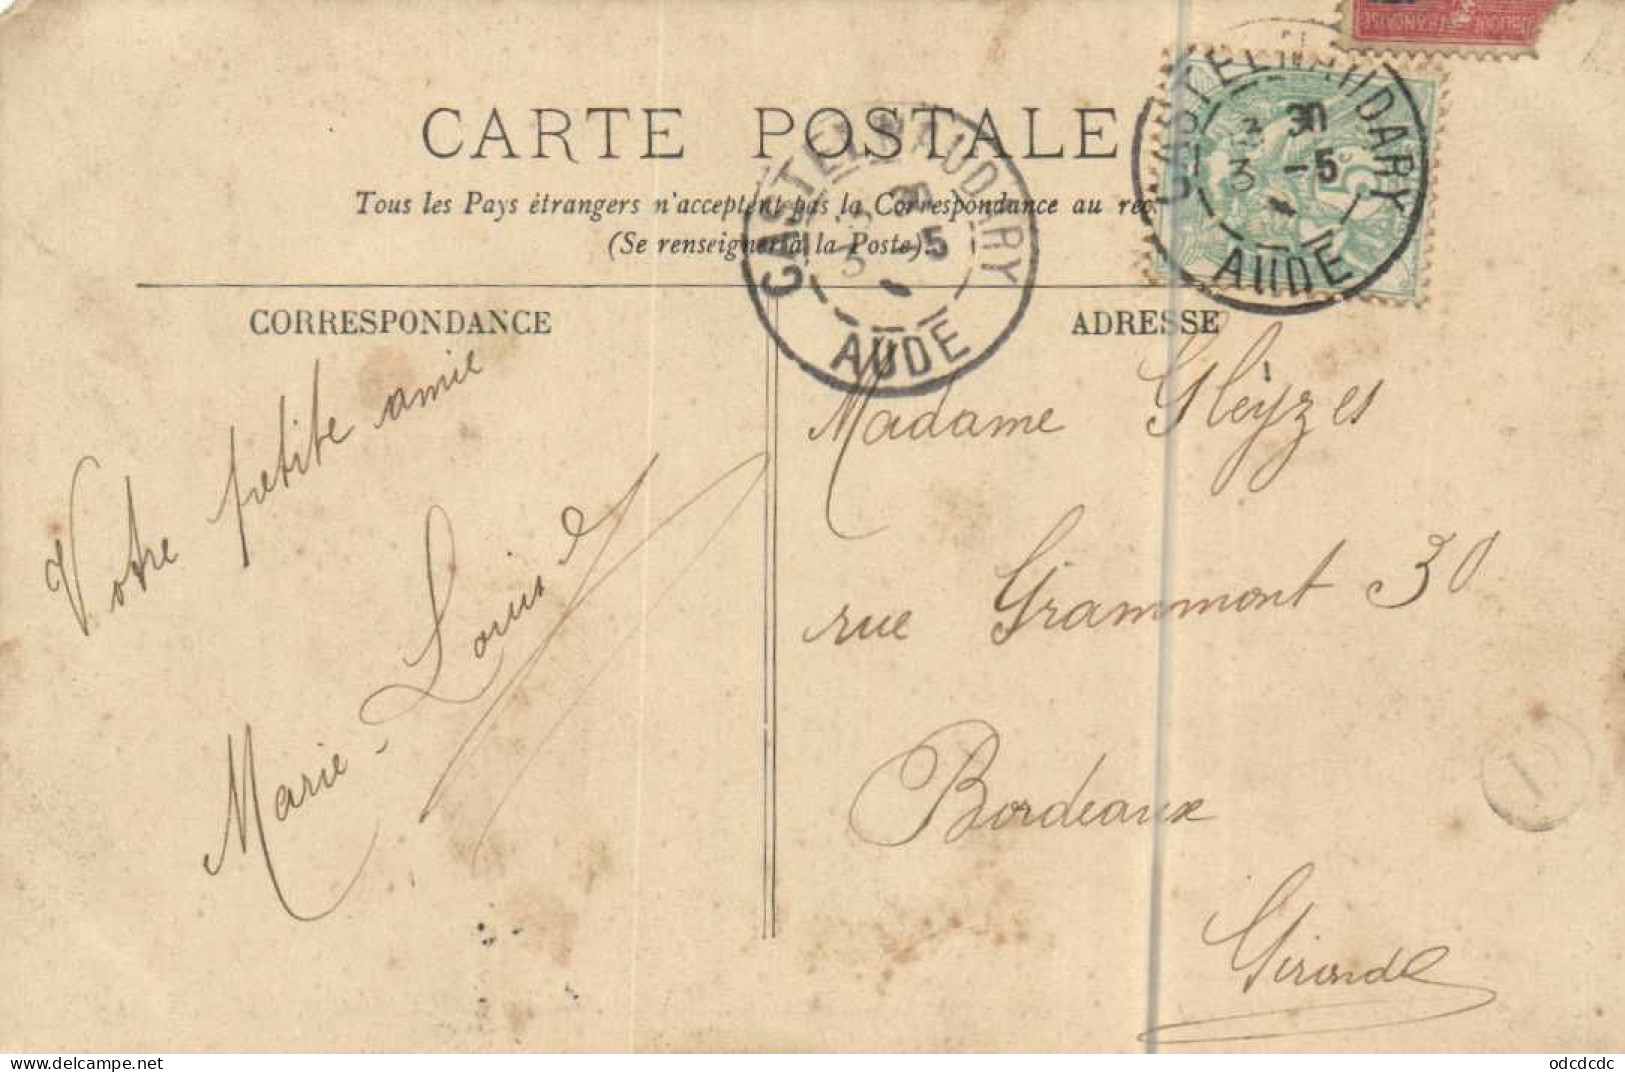 CARTE POSTALE
Tous les Pays étrangers n'acceptent pas la Correspondance au
(Se renseigner à la Poste).
CORRESPONDANCE
ADRESSE
CASTELNAUDARY
3 30
3 -5
AUDE
CASTELNAUDARY
3 -5
AUDE
Votre petite amie
Marie-Louise
Madame Gleyzes
rue Grammont 30
Bordeaux
Gironde
https://www.delcampe.net
odcdcdc